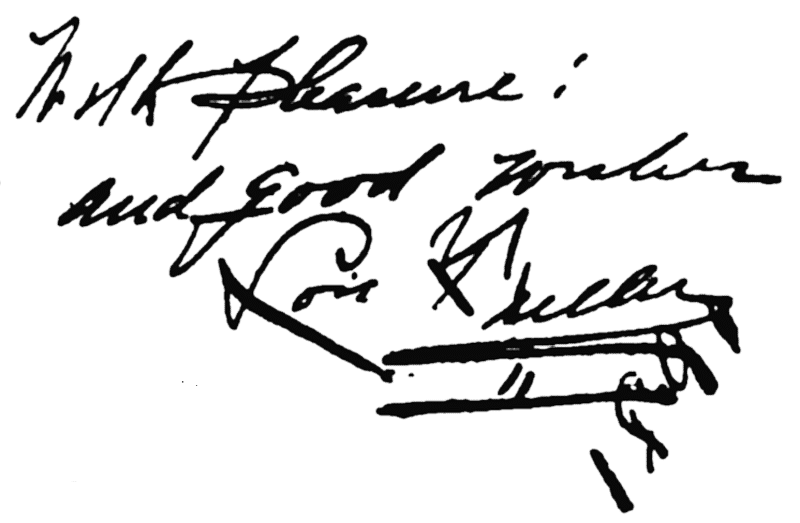 With pleasure!
and good wishes
Lois Fuller